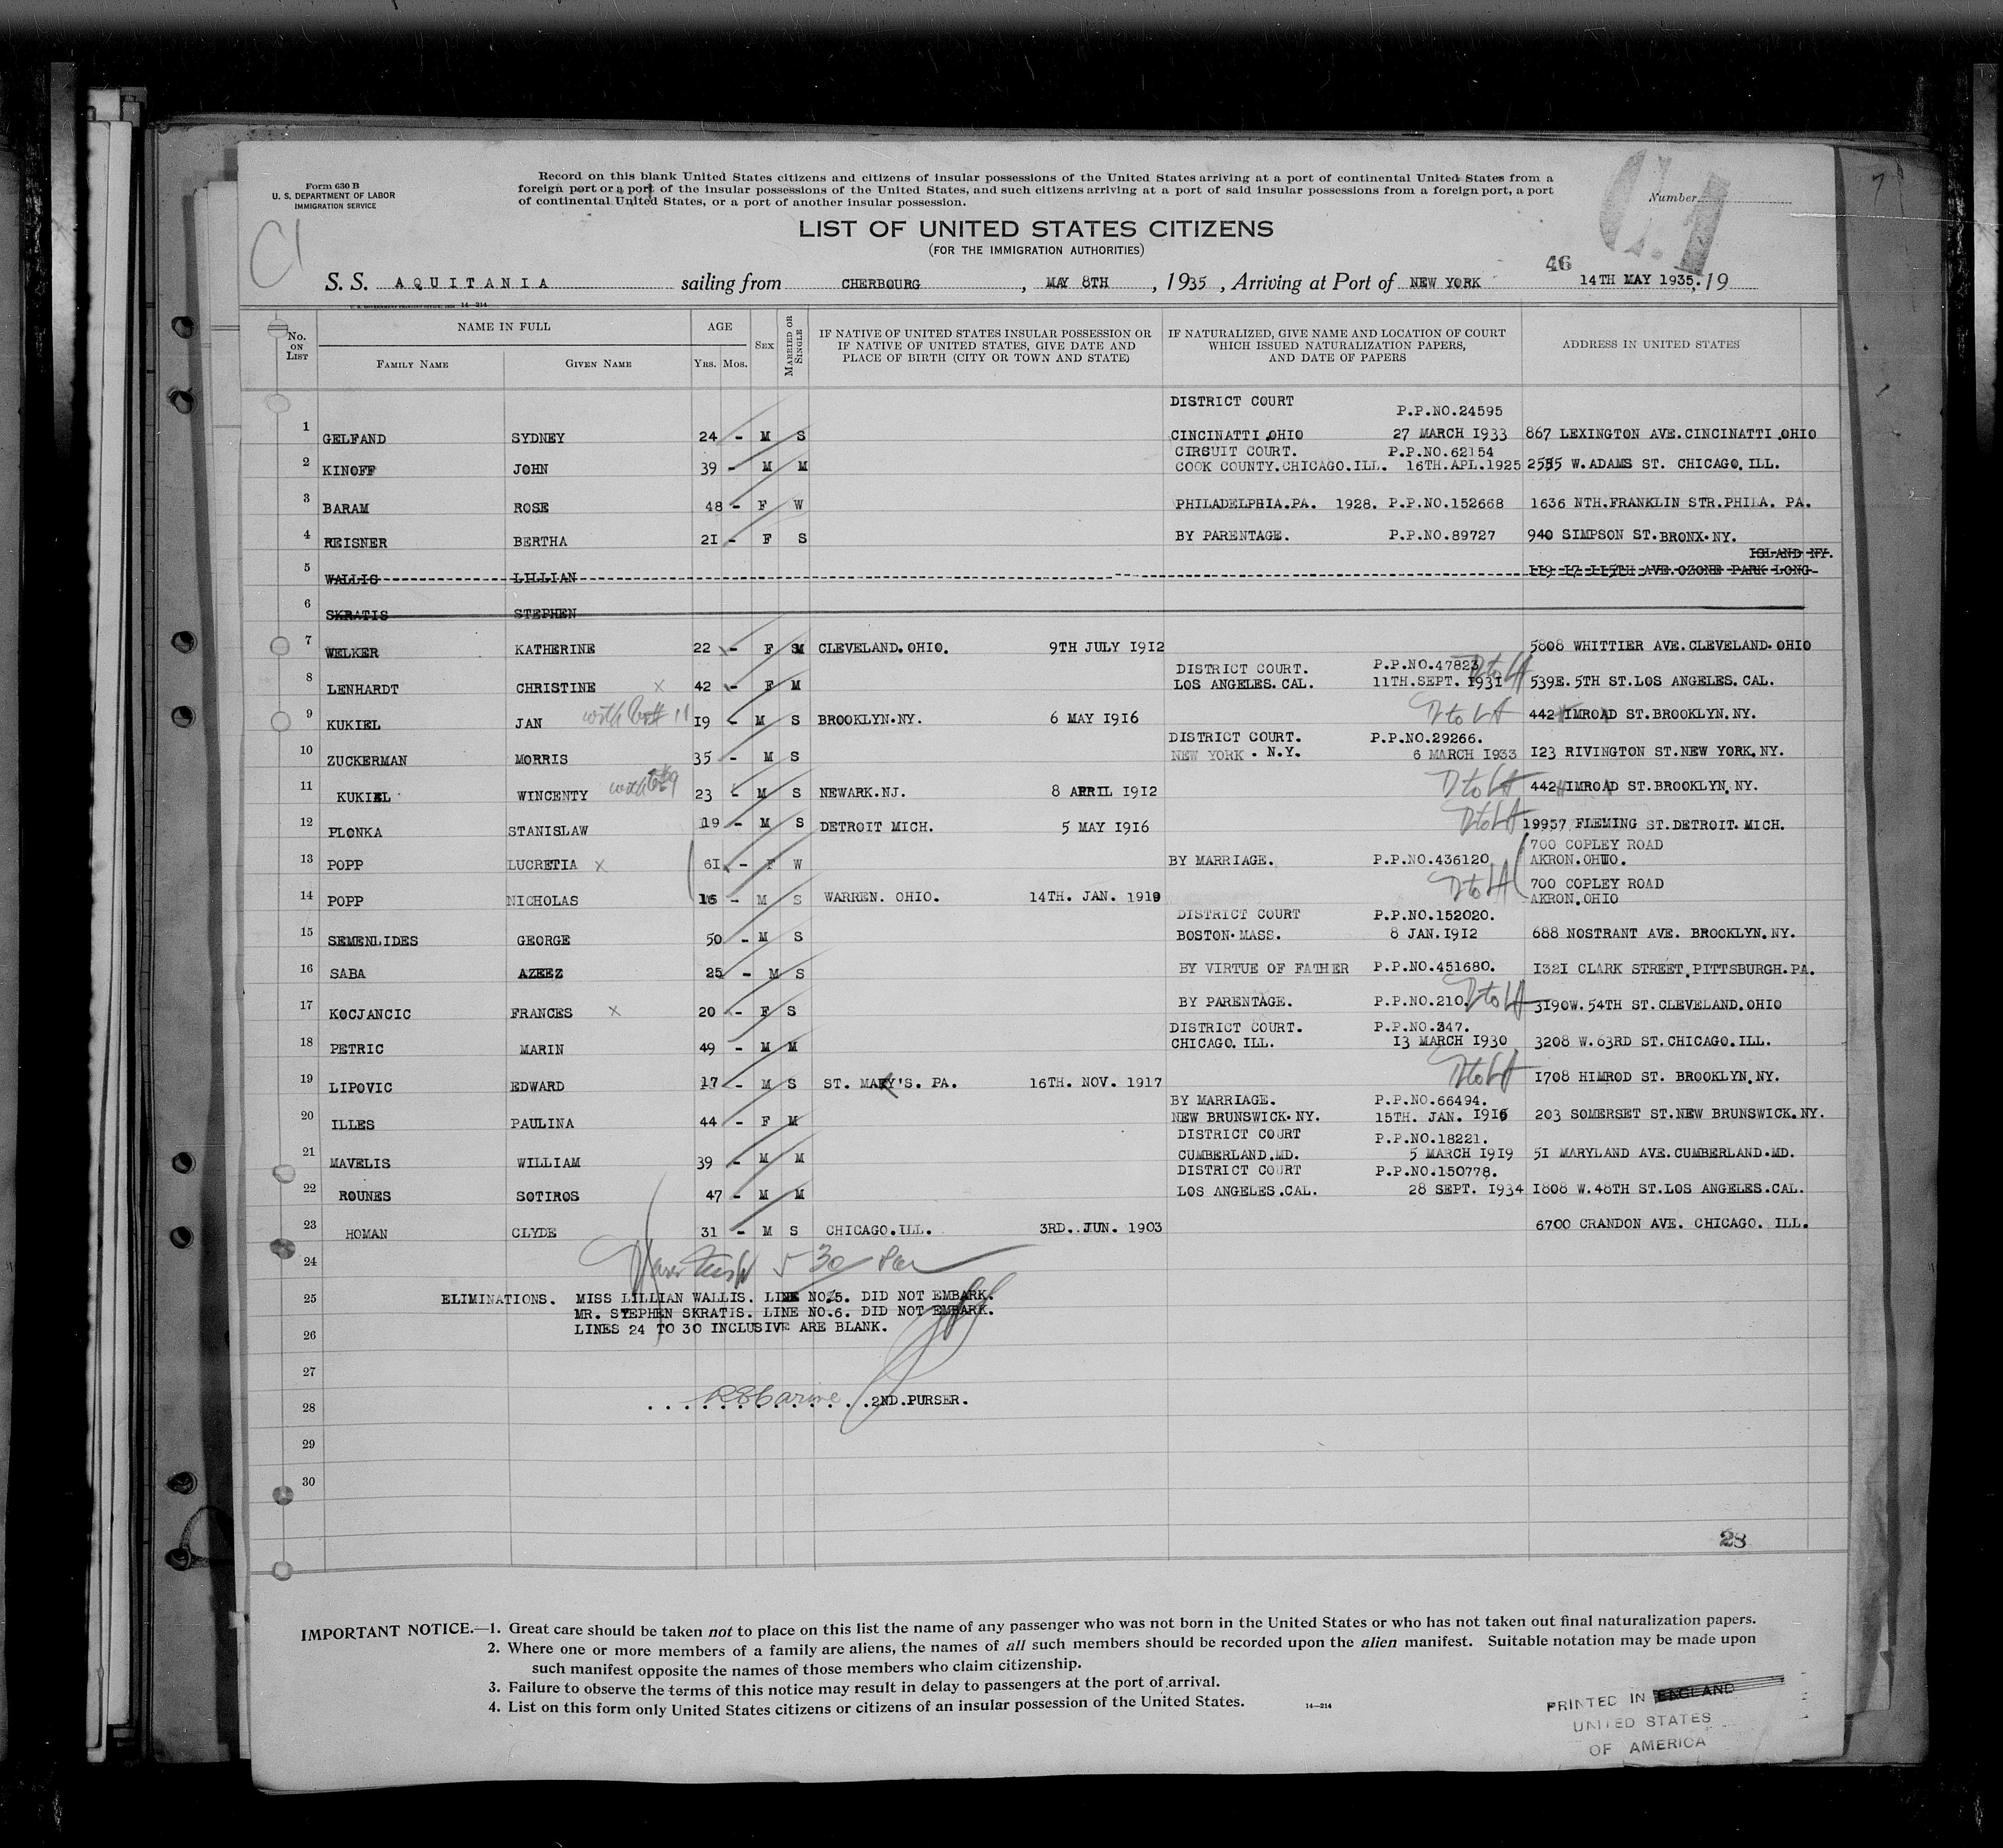 Form 630 B
U. S. DEPARTMENT OF LABOR
IMMIGRATION SERVICE
Record on this blank United States citizens and citizens of insular possessions of the United States arriving at a port of continental United States from a
foreign port or a port of the insular possessions of the United States, and such citizens arriving at a port of said insular possessions from a foreign port, a port
of continental United States, or a port of another insular possession.
Number
C1
C.1
LIST OF UNITED STATES CITIZENS
(FOR THE IMMIGRATION AUTHORITIES)
46
S. S. AQUITANIA sailing from CHERBOURG, MAY 8TH, 1935, Arriving at Port of NEW YORK 14TH MAY 1935, 19
14—214
No. ON LIST
NAME IN FULL
FAMILY NAME GIVEN NAME
AGE
YRS. MOS.
SEX
MARRIED OR SINGLE
IF NATIVE OF UNITED STATES INSULAR POSSESSION OR
IF NATIVE OF UNITED STATES, GIVE DATE AND
PLACE OF BIRTH (CITY OR TOWN AND STATE)
IF NATURALIZED, GIVE NAME AND LOCATION OF COURT
WHICH ISSUED NATURALIZATION PAPERS,
AND DATE OF PAPERS
ADDRESS IN UNITED STATES
DISTRICT COURT P.P.NO.24595
1 GELFAND SYDNEY 24 - M S CINCINATTI.OHIO 27 MARCH 1933 867 LEXINGTON AVE.CINCINATTI.OHIO
CIRSUIT COURT. P.P.NO.62154
2 KINOFF JOHN 39 - M M COOK COUNTY.CHICAGO.ILL. 16TH.APL.1925 2555 W.ADAMS ST. CHICAGO. ILL.
3 BARAM ROSE 48 - F W PHILADELPHIA.PA. 1928. P.P.NO.152668 1636 NTH.FRANKLIN STR.PHILA. PA.
4 REISNER BERTHA 21 - F S BY PARENTAGE. P.P.NO.89727 940 SIMPSON ST.BRONX.NY.
ISLAND NY.
5 WALLIS LILLIAN 119-17-115TH AVE.OZONE PARK LONG
6 SKRATIS STEPHEN
7 WELKER KATHERINE 22 - F M CLEVELAND.OHIO. 9TH JULY 1912 5808 WHITTIER AVE.CLEVELAND.OHIO
DISTRICT COURT. P.P.NO.47823
8 LENHARDT CHRISTINE x 42 - F M LOS ANGELES.CAL. 11TH.SEPT. 1931 539E. 5TH ST.LOS ANGELES. CAL.
9 KUKIEL JAN 19 - M S BROOKLYN.NY. 6 MAY 1916 442 IMROAD ST.BROOKLYN.NY.
DISTRICT COURT. P.P.NO.29266.
10 ZUCKERMAN MORRIS 35 - M S NEW YORK. N.Y. 6 MARCH 1933 123 RIVINGTON ST.NEW YORK.NY.
11 KUKIEL WINCENTY 23 - M S NEWARK.NJ. 8 APRIL 1912 442 IMROAD ST.BROOKLYN.NY.
12 PLONKA STANISLAW 19 - M S DETROIT MICH. 5 MAY 1916 19957 FLEMING ST.DETROIT. MICH.
700 COPLEY ROAD
13 POPP LUCRETIA x 61 - F W BY MARRIAGE. P.P.NO.436120 AKRON.OHIO.
700 COPLEY ROAD
14 POPP NICHOLAS 16 - M S WARREN. OHIO. 14TH. JAN. 1919 AKRON.OHIO
DISTRICT COURT P.P.NO.152020.
15 SEMENLIDES GEORGE 50 - M S BOSTON.MASS. 8 JAN.1912 688 NOSTRANT AVE. BROOKLYN.NY.
16 SABA AZEEZ 25 - M S BY VIRTUE OF FATHER P.P.NO.451680. 1321 CLARK STREET.PITTSBURGH.PA.
17 KOCJANCIC FRANCES x 20 - F S BY PARENTAGE. P.P.NO.210. 3190W. 54TH ST.CLEVELAND.OHIO
DISTRICT COURT. P.P.NO.347.
18 PETRIC MARIN 49 - M M CHICAGO. ILL. 13 MARCH 1930 3208 W.63RD ST.CHICAGO.ILL.
19 LIPOVIC EDWARD 17 - M S ST. MARY'S. PA. 16TH. NOV. 1917 1708 HIMROD ST. BROOKLYN.NY.
BY MARRIAGE. P.P.NO.66494.
20 ILLES PAULINA 44 - F M NEW BRUNSWICK.NY. 15TH. JAN. 1916 203 SOMERSET ST.NEW BRUNSWICK.NY.
DISTRICT COURT P.P.NO.18221.
21 MAVELIS WILLIAM 39 - M M CUMBERLAND.MD. 5 MARCH 1919 51 MARYLAND AVE.CUMBERLAND.MD.
DISTRICT COURT P.P.NO.150778.
22 ROUNES SOTIROS 47 - M M LOS ANGELES.CAL. 28 SEPT. 1934 1808 W.48TH ST.LOS ANGELES.CAL.
23 HOMAN CLYDE 31 - M S CHICAGO.ILL. 3RD. JUN. 1903 6700 CRANDON AVE. CHICAGO. ILL.
24
25 ELIMINATIONS. MISS LILLIAN WALLIS. LINE NO.5. DID NOT EMBARK.
MR. STEPHEN SKRATIS. LINE NO.6. DID NOT EMBARK.
26 LINES 24 TO 30 INCLUSIVE ARE BLANK.
27
28 2ND.PURSER.
29
30
28
IMPORTANT NOTICE.—1. Great care should be taken not to place on this list the name of any passenger who was not born in the United States or who has not taken out final naturalization papers.
2. Where one or more members of a family are aliens, the names of all such members should be recorded upon the alien manifest. Suitable notation may be made upon
such manifest opposite the names of those members who claim citizenship.
3. Failure to observe the terms of this notice may result in delay to passengers at the port of arrival.
4. List on this form only United States citizens or citizens of an insular possession of the United States.
14—214
PRINTED IN ENGLAND
UNITED STATES
OF AMERICA